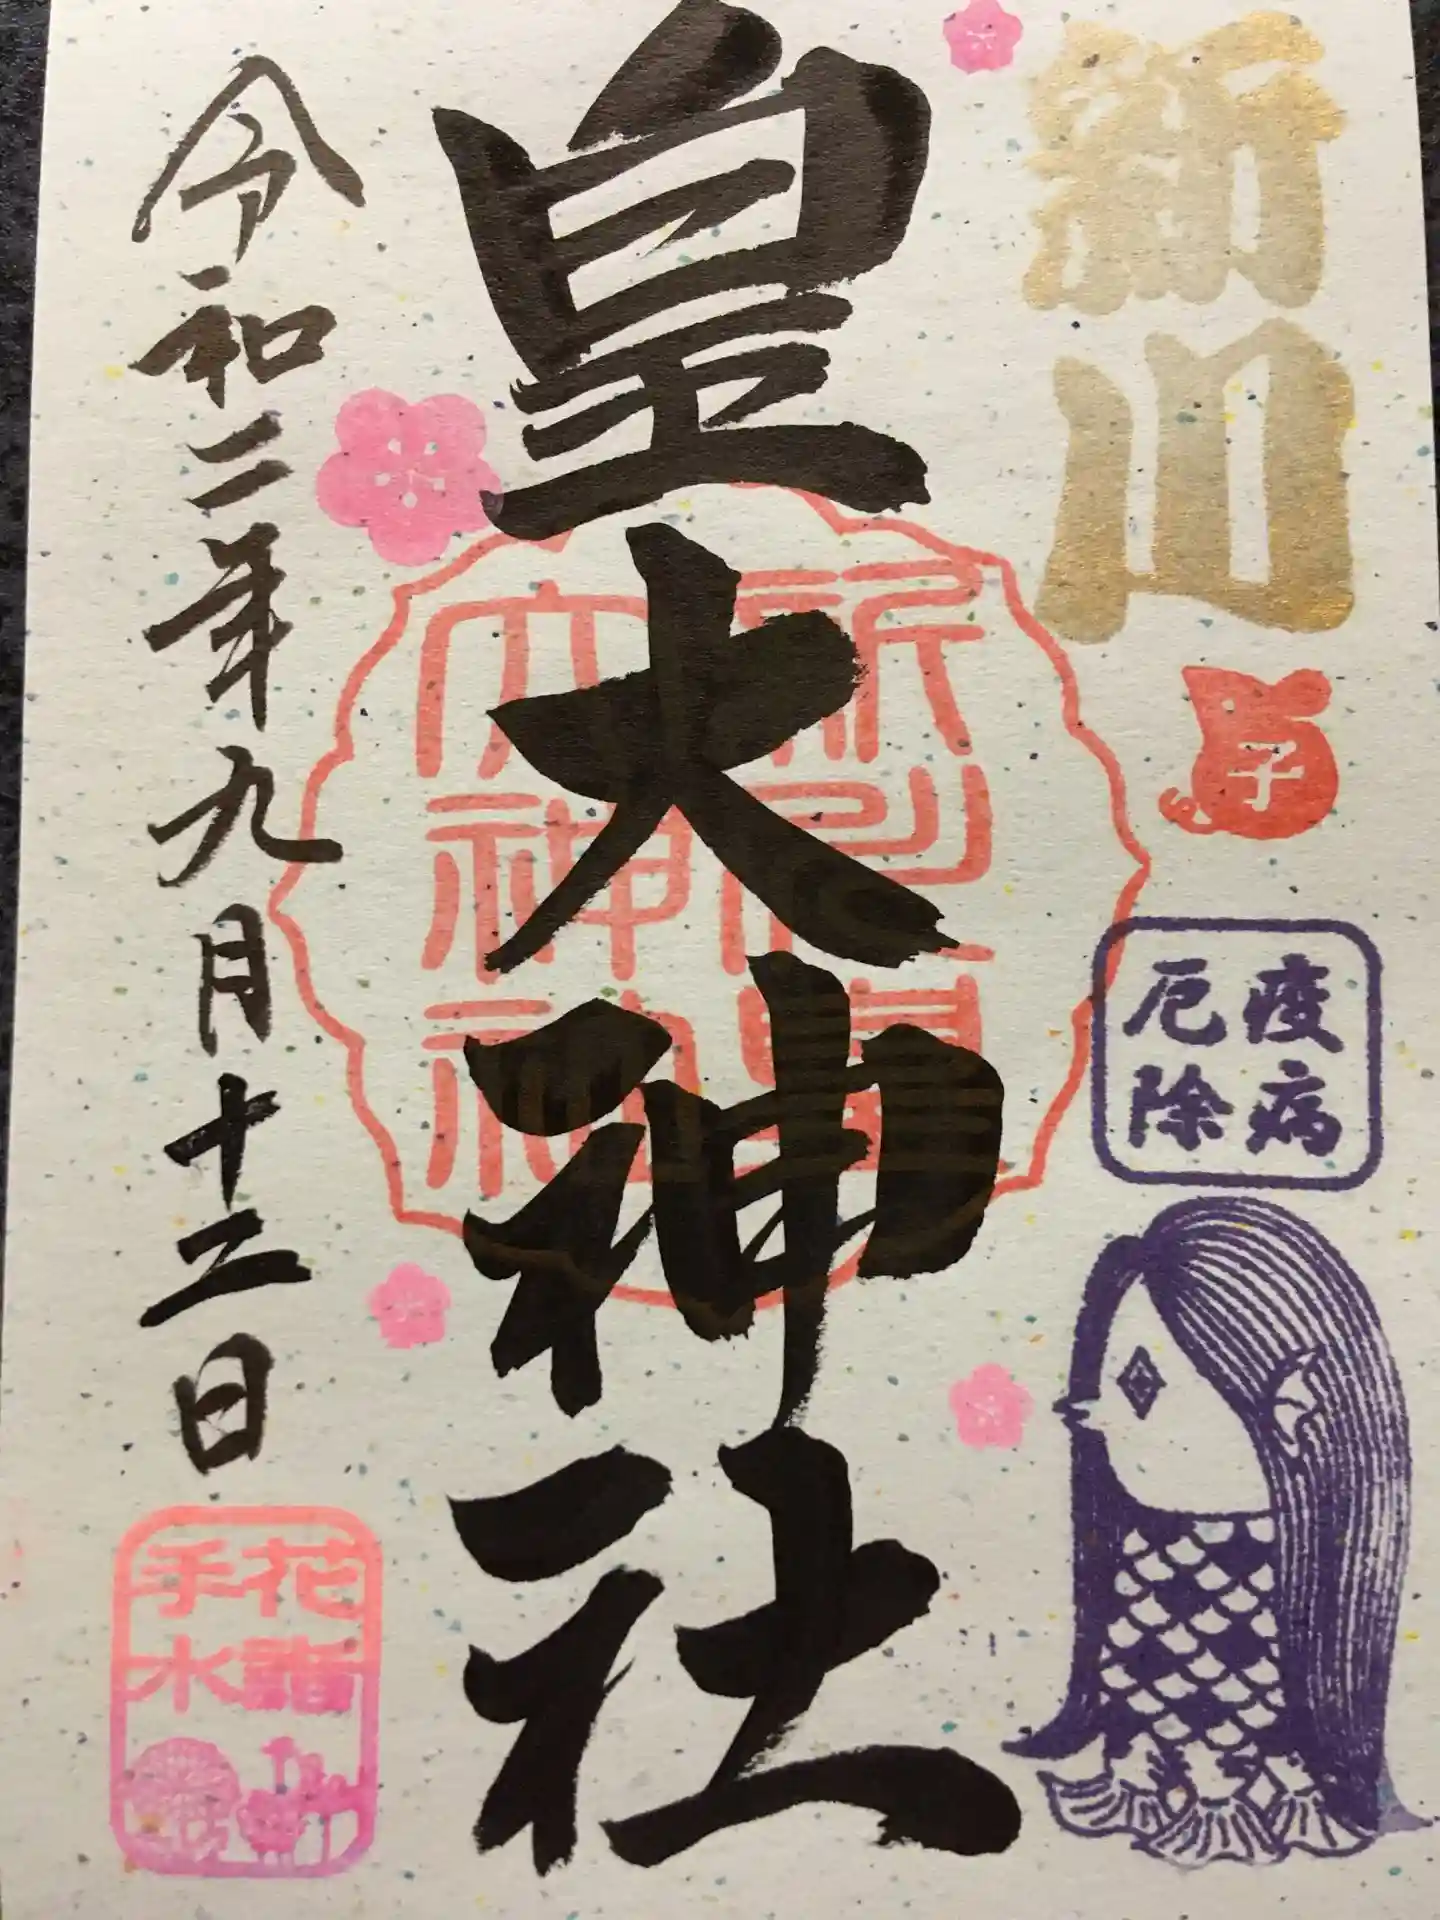 新川
子
疫病
厄除
皇大神社
新川皇
大神社
令和二年九月十二日
花詣
手水